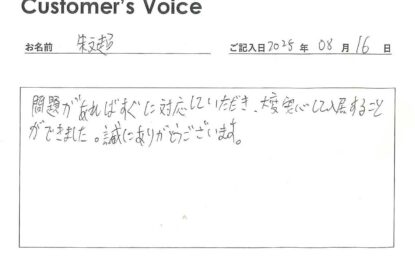 Customer's Voice
お名前 朱文超 ご記入日2025年 08月16日
問題があればすぐに対応していただき、大変安心して入居すること
ができました。誠にありがとうございます。